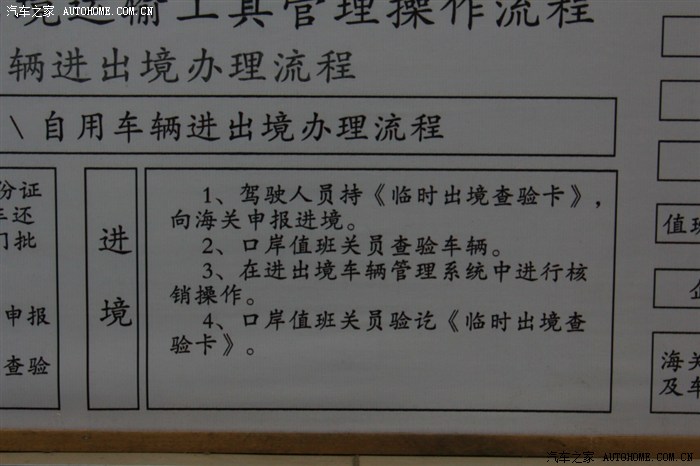 汽车之家 AUTOHOME.COM.CN
境运输工具管理操作流程
辆进出境办理流程
\ 自用车辆进出境办理流程
份证
车还
门批
申报
查验
进
境
1、驾驶人员持《临时出境查验卡》,
向海关申报进境。
2、口岸值班关员查验车辆。
3、在进出境车辆管理系统中进行核
销操作。
4、口岸值班关员验讫《临时出境查
验卡》。
值班
企
海关
及车
汽车之家 AUTOHOME.COM.CN